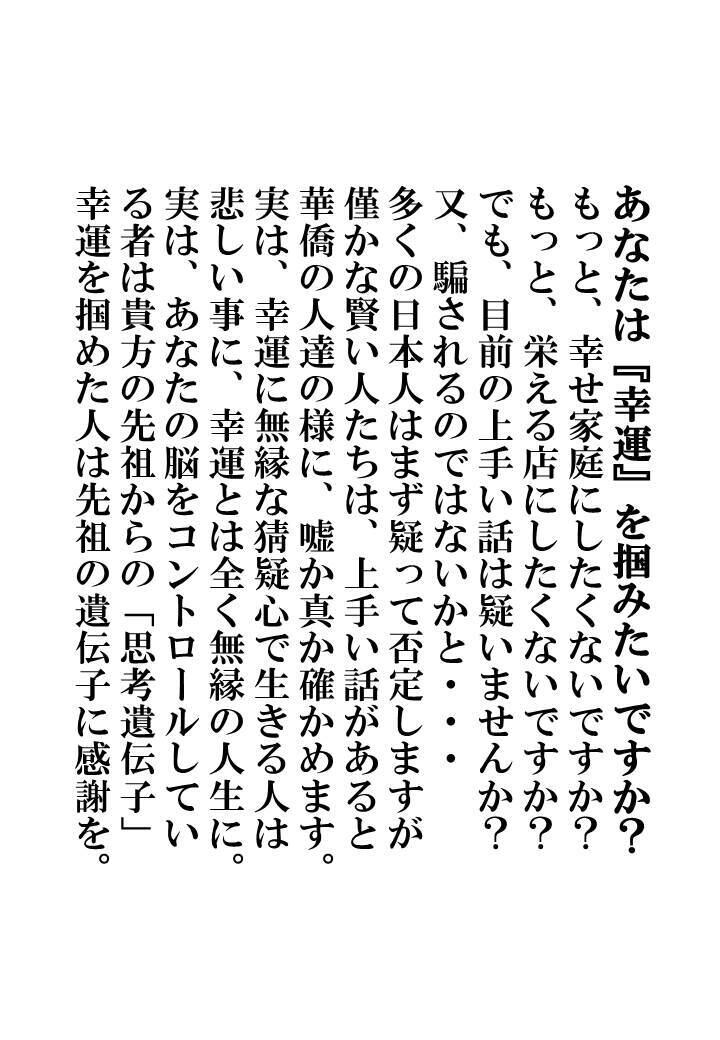 あなたは『幸運』を掴みたいですか？
もっと、幸せ家庭にしたくないですか？
もっと、栄える店にしたくないですか？
でも、目前の上手い話は疑いませんか？
又、騙されるのではないかと・・・
多くの日本人はまず疑って否定しますが
僅かな賢い人たちは、上手い話があると
華僑の人達の様に、嘘か真か確かめます。
実は、幸運に無縁な猜疑心で生きる人は
悲しい事に、幸運とは全く無縁の人生に。
実は、あなたの脳をコントロールしてい
る者は貴方の先祖からの「思考遺伝子」
幸運を掴めた人は先祖の遺伝子に感謝を。